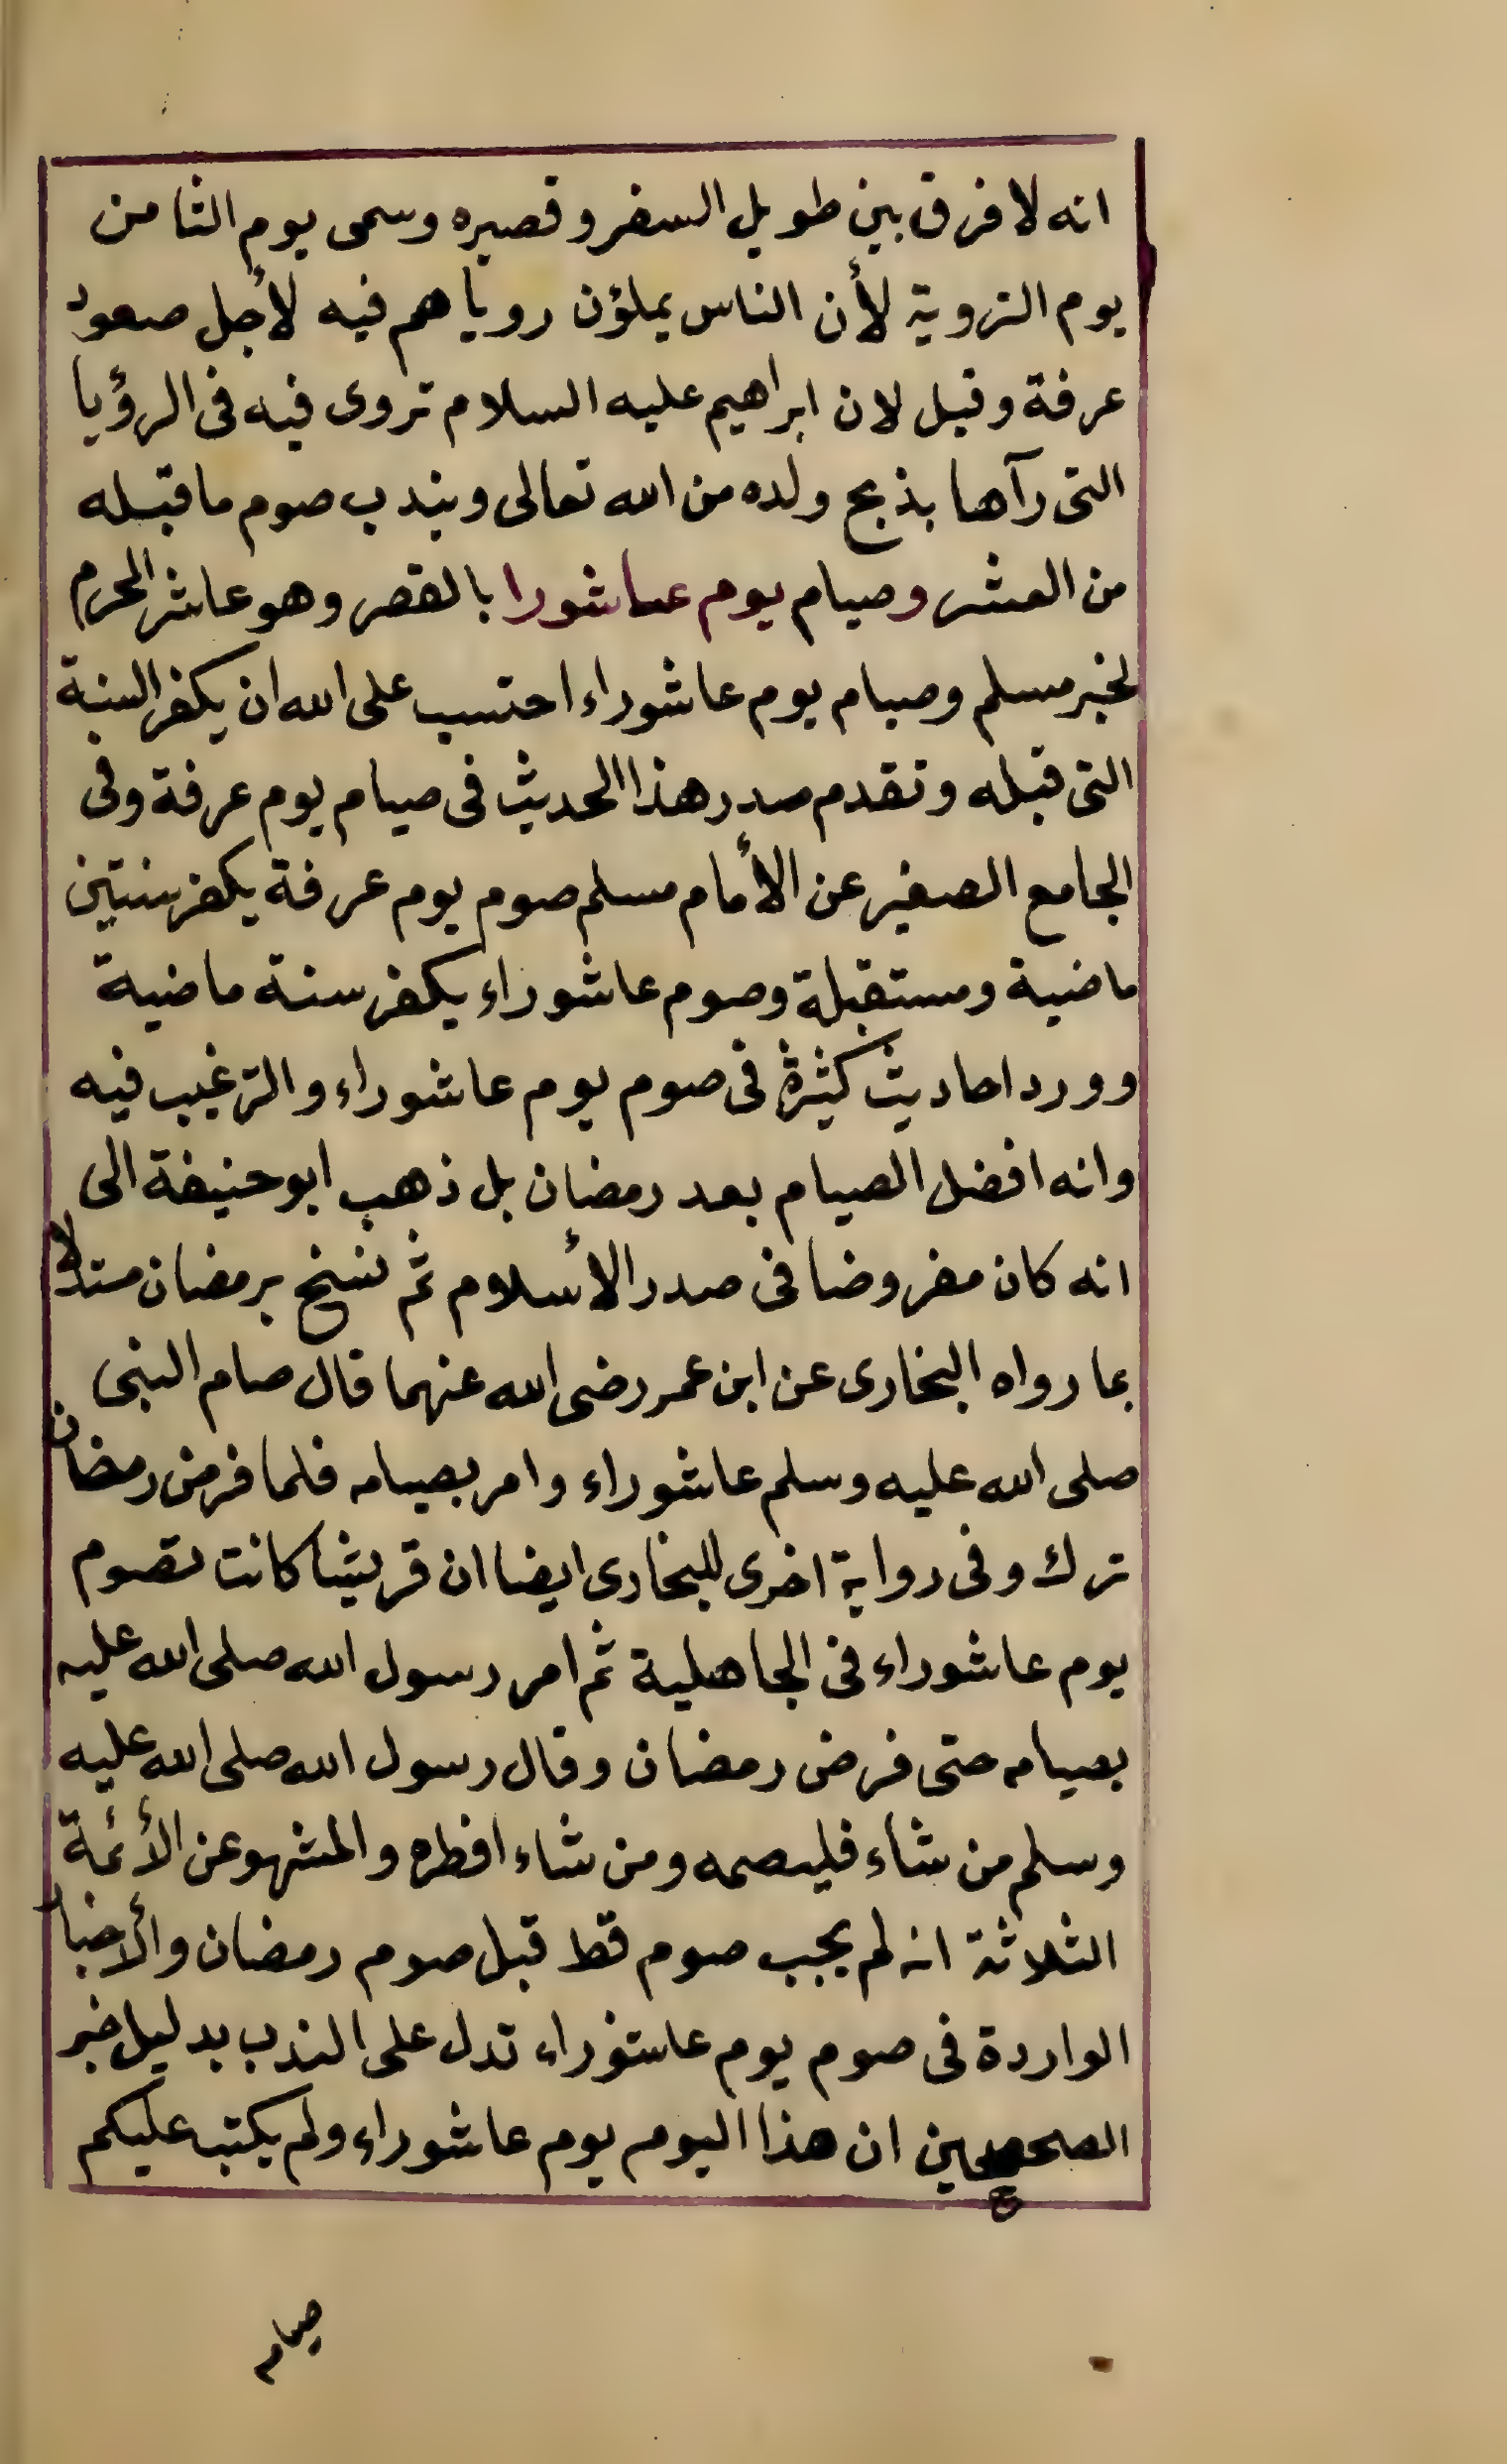 انه لا فرق بين طويل السفر وقصيره وسمى يوم الثامن
يوم التروية لأن الناس يملؤن روياهم فيه لأجل صعود
عرفة وقيل لان ابراهيم عليه السلام تروى فيه فى الرؤيا
التى رآها بذبح ولده من الله تعالى ويندب صوم ما قبله
من العشر وصيام يوم عاشورا بالقصر وهو عاشر المحرم
لخبر مسلم وصيام يوم عاشوراء احتسب على الله ان يكفر السنة
التى قبله وتقدم صدر هذا الحديث فى صيام يوم عرفة وفى
الجامع الصغير عن الأمام مسلم صوم يوم عرفة يكفر سنتين
ماضية ومستقبلة وصوم عاشوراء يكفر سنة ماضية
وورد احاديث كثيرة فى صوم يوم عاشوراء والترغيب فيه
وانه افضل الصيام بعد رمضان بل ذهب ابو حنيفة الى
انه كان مفروضا فى صدر الأسلام ثم نسخ برمضان مستدلا
بما رواه البخارى عن ابن عمر رضى الله عنهما قال صام النبى
صلى الله عليه وسلم عاشوراء وامر بصيامه فلما فرض رمضان
ترك وفى رواية اخرى للبخارى ايضا ان قريشا كانت تصوم
يوم عاشوراء فى الجاهلية ثم امر رسول الله صلى الله عليه
بصيامه حتى فرض رمضان وقال رسول الله صلى الله عليه
وسلم من شاء فليصمه ومن شاء افطره والمشهو عن الأئمة
الثلاثة انه لم يجب صوم قط قبل صوم رمضان والأخبار
الواردة فى صوم يوم عاشوراء تدل على الندب بدليل خبر
الصحيحين ان هذا اليوم يوم عاشوراء ولم يكتب عليكم
صيام